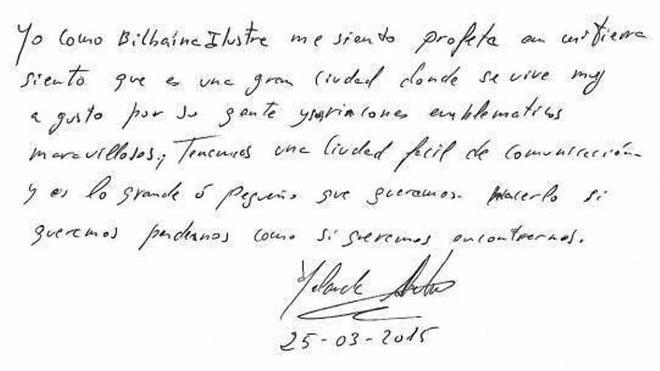 Yo como Bilbaína Ilustre me siento profeta en mi tierra
siento que es una gran Ciudad donde se vive muy
a gusto por su gente y surincones emblematicos
maravillosos, Tenemos una Ciudad facil de comunicación
y es lo grande ó pequeño que queramos. Hacerlo si
queremos perdernos como si queremos encontrarnos.
Yolanda
25-03-2015